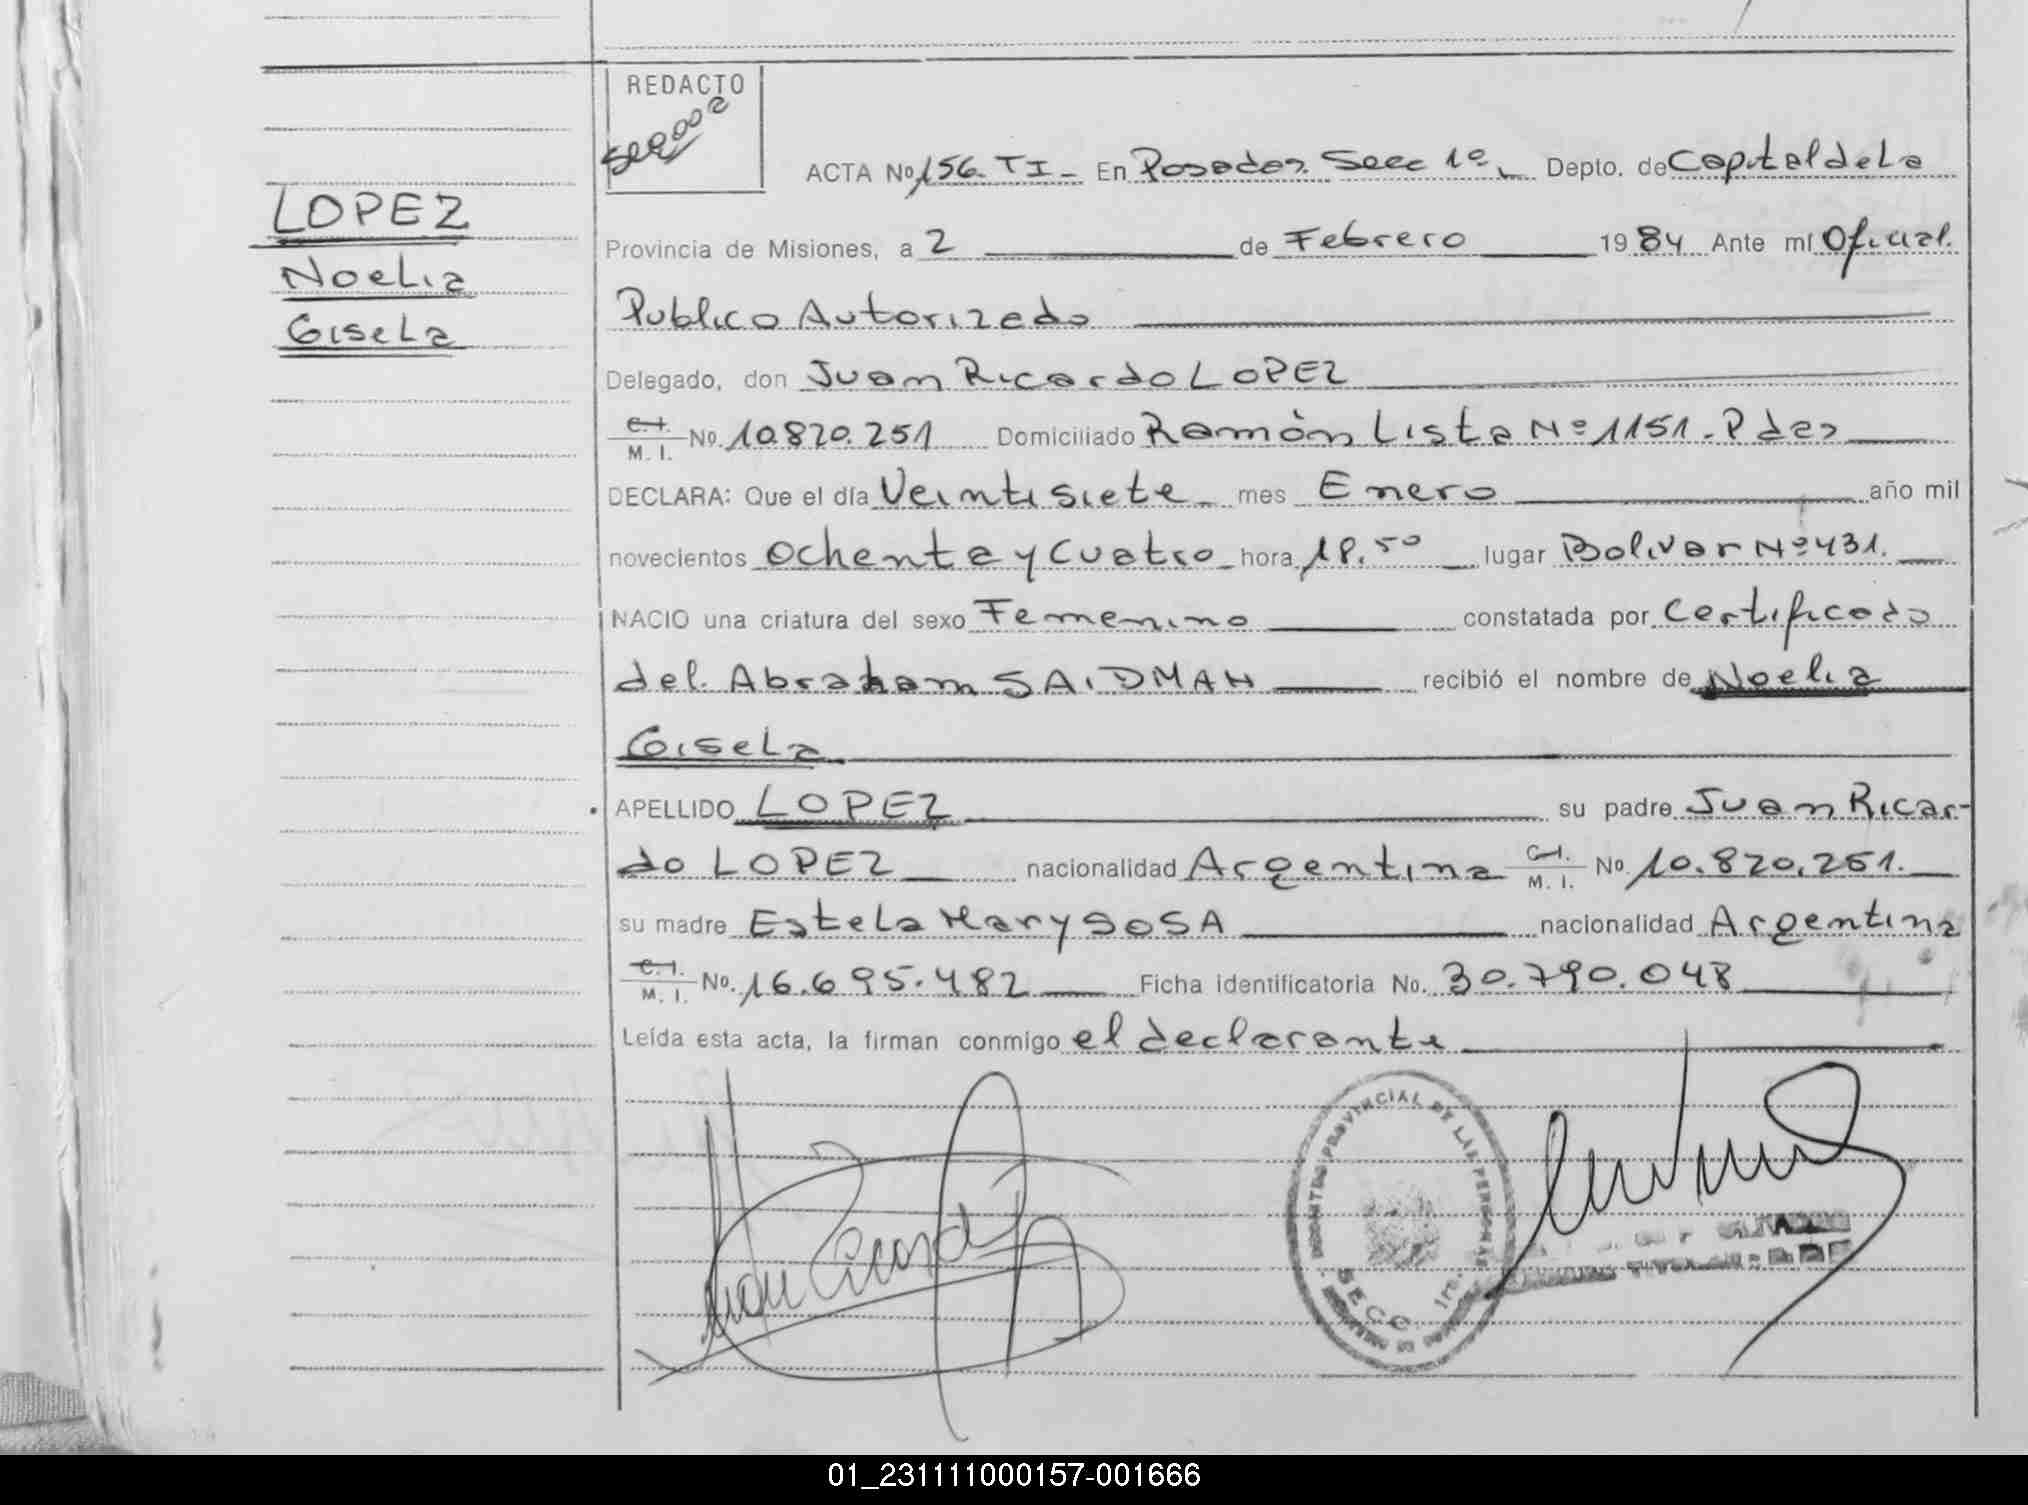 REDACTO
ACTA No 156. TI - En Posadas. Secc 1º Depto. de Capital de La
LOPEZ
Provincia de Misiones, a 2 de Febrero 1984 Ante mí Oficial.
Noelia
Publico Autorizado
Gisela
Delegado, don Juan Ricardo LOPEZ
C.I. M. I. No. 10.820.251 Domiciliado Ramón Lista Nº 1151. Pdas
DECLARA: Que el día Veintisiete mes Enero año mil
novecientos Ochenta y Cuatro hora 18.50 lugar Bolivar Nº 431.
NACIO una criatura del sexo Femenino constatada por Certificado
del. Abraham SAIDMAN recibió el nombre de Noelia
Gisela
APELLIDO LOPEZ su padre Juan Ricar-
do LOPEZ nacionalidad Argentina C.I. M. I. No. 10.820.251.
su madre Estela Mary SOSA nacionalidad Argentina
C.I. M. I. No. 16.695.482 Ficha identificatoria No. 30.790.048
Leída esta acta, la firman conmigo el declarante
PROVINCIAL DE LAS PERSONAS
SECC. 1ra.
01_231111000157-001666